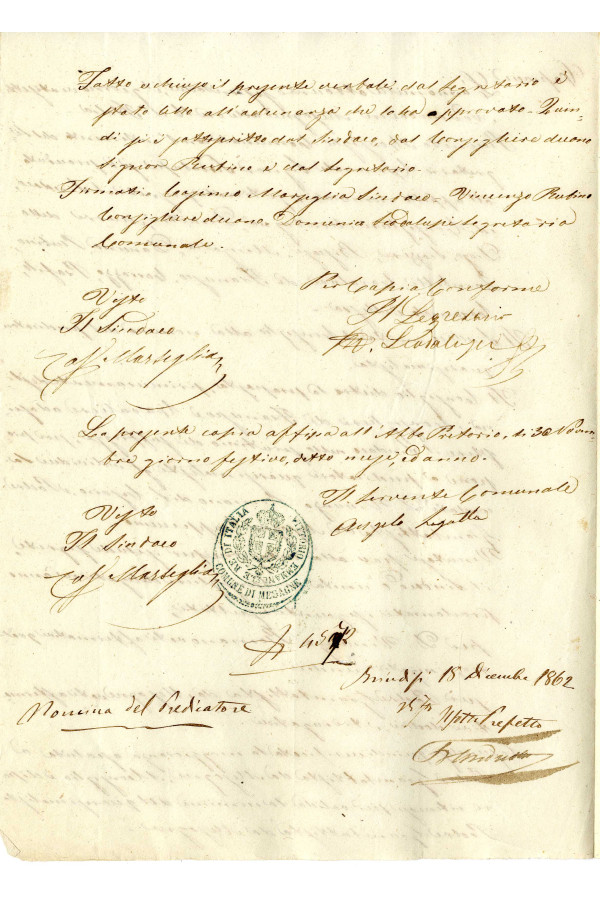 Fatto e chiuso il presente verbale dal Segretario è
stato letto all'adunanza che lo ha approvato. Quin-
di si è sottoscritto dal Sindaco, dal Consigliere Anziano
Signor Rubino e dal Segretario.
Firmati. Cosimo Marseglia Sindaco. Vincenzo Rubino
Consigliere Domenico Scodalupi Segretario
Comunale.
Per Copia Conforme
Visto
Il Segretario
Il Sindaco
D. Scodalupi
Cos. Marseglia
La presente copia affissa all'Albo Pretorio, di 30 Novem-
bre giorno festivo, detto mese, ed anno.
Il Servente Comunale
Visto
Angelo Legatta
Il Sindaco
Cos. Marseglia
VITTORIO EMANUELE RE DI ITALIA
COMUNE DI MESAGNE
Brindisi 15 Dicembre 1862
Nomina del Predicatore
Sotto Prefetto